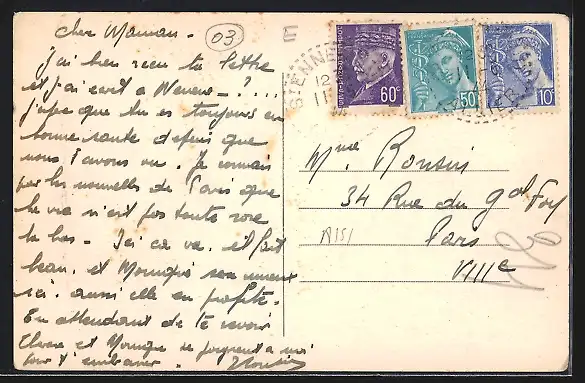 cher Maman -
03
J'ai bien reçu ta lettre
et j'ai écrit a
j'espe que tu es toujours en
bonne santé depuis que
nous t'avons vu. Je connais
par les nouvelles de Paris que
la vie n'est pas toute rose
là bas - Ici ca va, il fait
beau, et Monique
ici. aussi elle en profite.
En attendant de te revoir
et Monique se joignent a moi
pour t'embrasser.
60c
50c
10c
12
11
Mme Ronsin
34 Rue du Gal Foy
Paris
VIIIe
A151